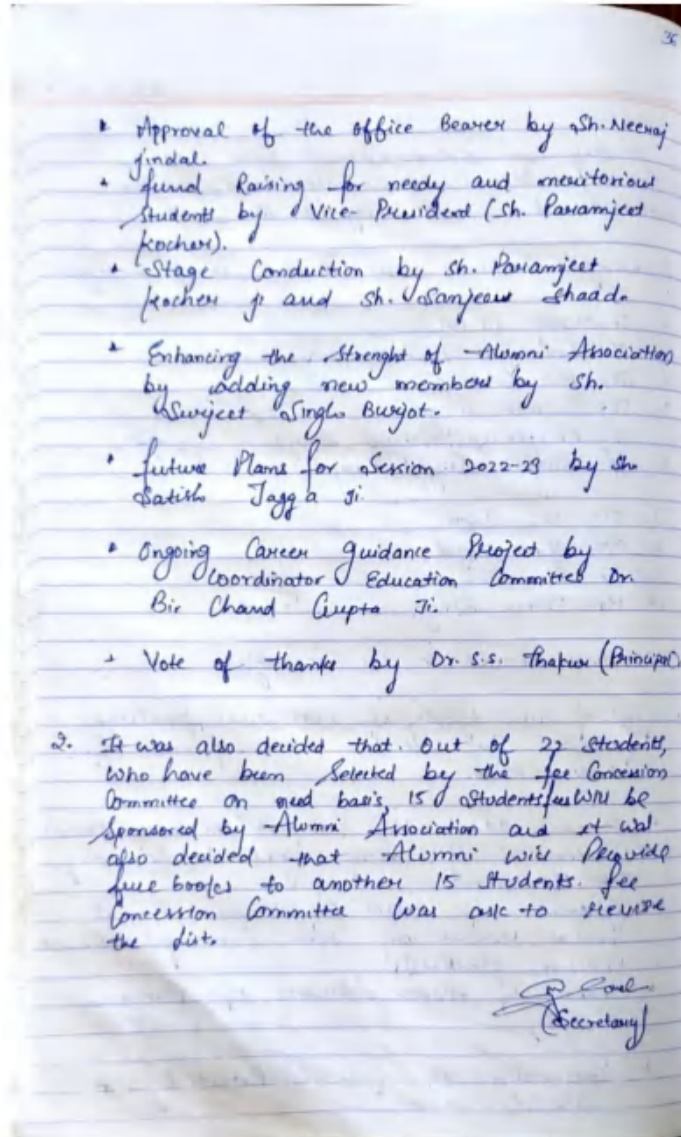 • Approval of the office Bearer by Sh. Neeraj
jindal.
• fund Raising for needy and meritorious
students by Vice-President (Sh. Paramjeet
kocher).
• Stage Conduction by Sh. Paramjeet
kocher ji and Sh. Sanjeev Shaad.
• Enhancing the Strenght of Alumni Association
by adding new members by Sh.
Surjeet Singh Burjot.
• future Plans for Session 2022-23 by Sh.
Satish Jagga Ji.
• Ongoing Career guidance Project by
Coordinator Education Committee Dr.
Bir Chand Gupta Ji.
• Vote of thanks by Dr. S.S. Thapur (Principal).
2. It was also decided that out of 22 students,
who have been Selected by the fee Concession
Committee on need basis, 15 students fees will be
Sponsored by Alumni Association and it was
also decided that Alumni will Provide
free books to another 15 students. fee
Concession Committee was ask to revise
the list.
(Secretary)